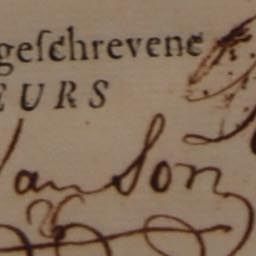 geſchrevene
EURS
van Son